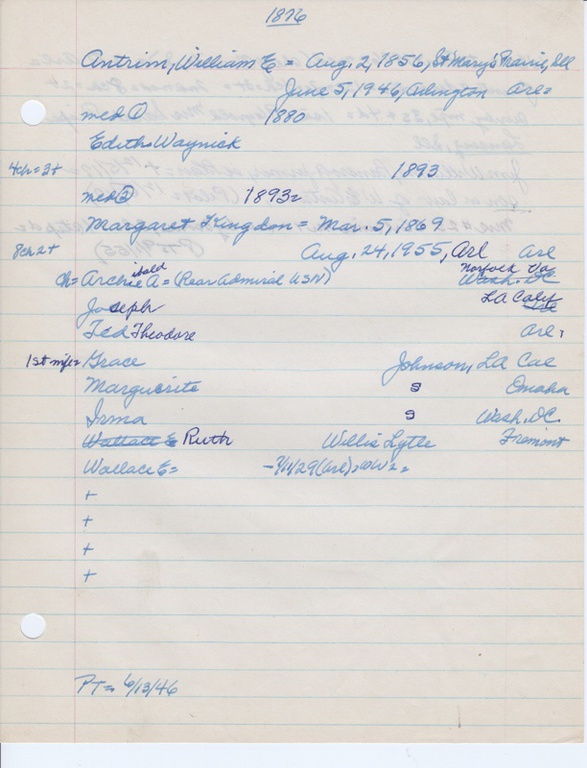 1876
Antrim, William E = Aug. 2, 1856, St Mary's Prairie, Ill
June 5, 1946, Arlington Arl=
med ① 1880
Edith Waynick
4ch=3+ 1893
med ② 1893=
Margaret Kingdon = Mar. 5, 1869
8ch 2+ Aug. 24, 1955, Arl Arl
Ch= Archie ibald A = (Rear Admiral USN) Norfolk Va Wash. DC
Joseph LA Calif
Ted Theodore Arl,
1st mfe= Grace Johnson, LA Cal
Marguerite s Omaha
Irma s Wash. DC.
Wallace E Ruth Willis Lytle Fremont
Wallace E= - 7/11/29 (Arl),
+
+
+
+
PT= 6/13/46